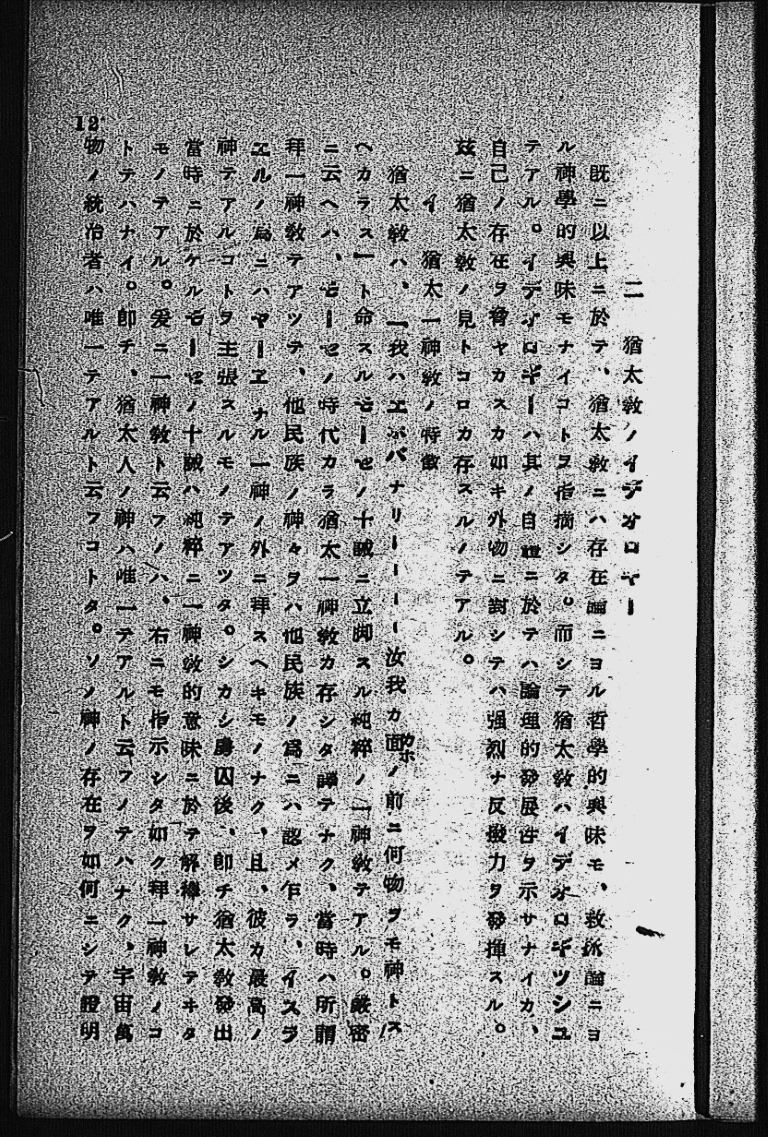 二 猶太敎ノイデオロギー
既ニ以上ニ於テ、猶太敎ニハ存在論ニヨル哲學的興味モ、救拯論ニヨ
ル神學的興味モナイコトヲ指摘シタ。而シテ猶太敎ハイデオロギツシユ
テアル。イデオロギーハ其ノ自體ニ於テハ論理的發展性ヲ示サナイカ、
自己ノ存在ヲ脅ヤカスカ如キ外物ニ對シテハ强烈ナ反撥力ヲ發揮スル。
玆ニ猶太敎ノ見トコロカ存スルノテアル。
イ 猶太一神敎ノ特徵
猶太敎ハ、「我ハエホバナリーーーー汝我カ面ノ前ニ何物ヲモ神トス
カホ
ヘカラス」ト命スルモーセノ十誡ニ立脚スル純粹ノ一神敎テアル。嚴密
ニ云ヘハ、モーセノ時代カラ猶太一神敎カ存シタ譯テナク、當時ハ所謂
拜一神敎テアツテ、他民族ノ神々ヲハ他民族ノ爲ニハ認メ乍ラ、イスラ
エルノ爲ニハヤーエナル一神ノ外ニ拜スヘキモノナク、且、彼カ最高ノ
神テアルコトヲ主張スルモノテアツタ。シカシ虜囚後、卽チ猶太敎發出
當時ニ於ケルモーセノ十誡ハ純粹ニ一神敎的意味ニ於テ解釋サレテキタ
モノテアル。爰ニ一神敎ト云フノハ、右ニモ指示シタ如ク拜一神敎ノコ
トテハナイ。卽チ、猶太人ノ神ハ唯一テアルト云フノテハナク、宇宙萬
物ノ統治者ハ唯一テアルト云フコトタ。ソノ神ノ存在ヲ如何ニシテ證明
12